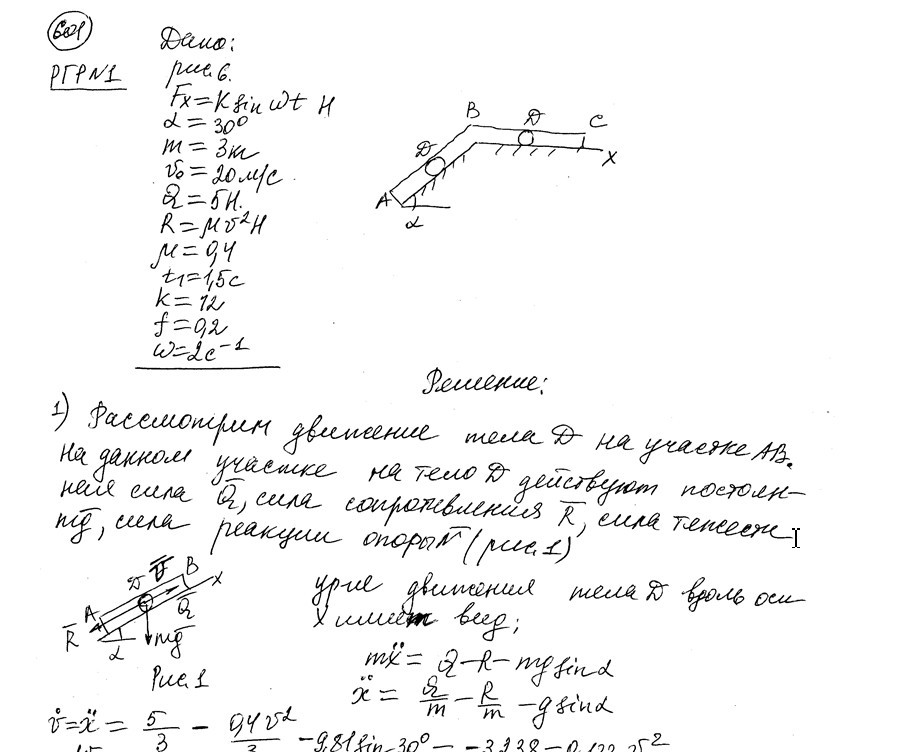 601
РГР№1
Дано:
рис. 6.
Fx = K sin ωt Н
α = 30°
m = 3кг
v₀ = 20 м/с
Q = 5Н.
R = μv²Н
μ = 0,4
t₁ = 1,5с
k = 12
f = 0,2
ω = 2с⁻¹
B D C
D X
A
α
Решение:
1) Рассмотрим движение тела D на участке AB.
На данном участке на тело D действуют постоян-
ная сила Q̅, сила сопротивления R̅, сила тяжести
mg̅, сила реакции опоры N̅ (рис. 1)
D v̅ B X
A Q̅
R̅ α mg̅
Рис. 1
ур-ие движения тела D вдоль оси
X имеет вид;
mẍ = Q - R - mg sinα
ẍ = Q/m - R/m - g sinα
v̇ = ẍ = 5/3 - 0,4v²/3 - 9,81 sin 30° = -3,238 - 0,133 v²